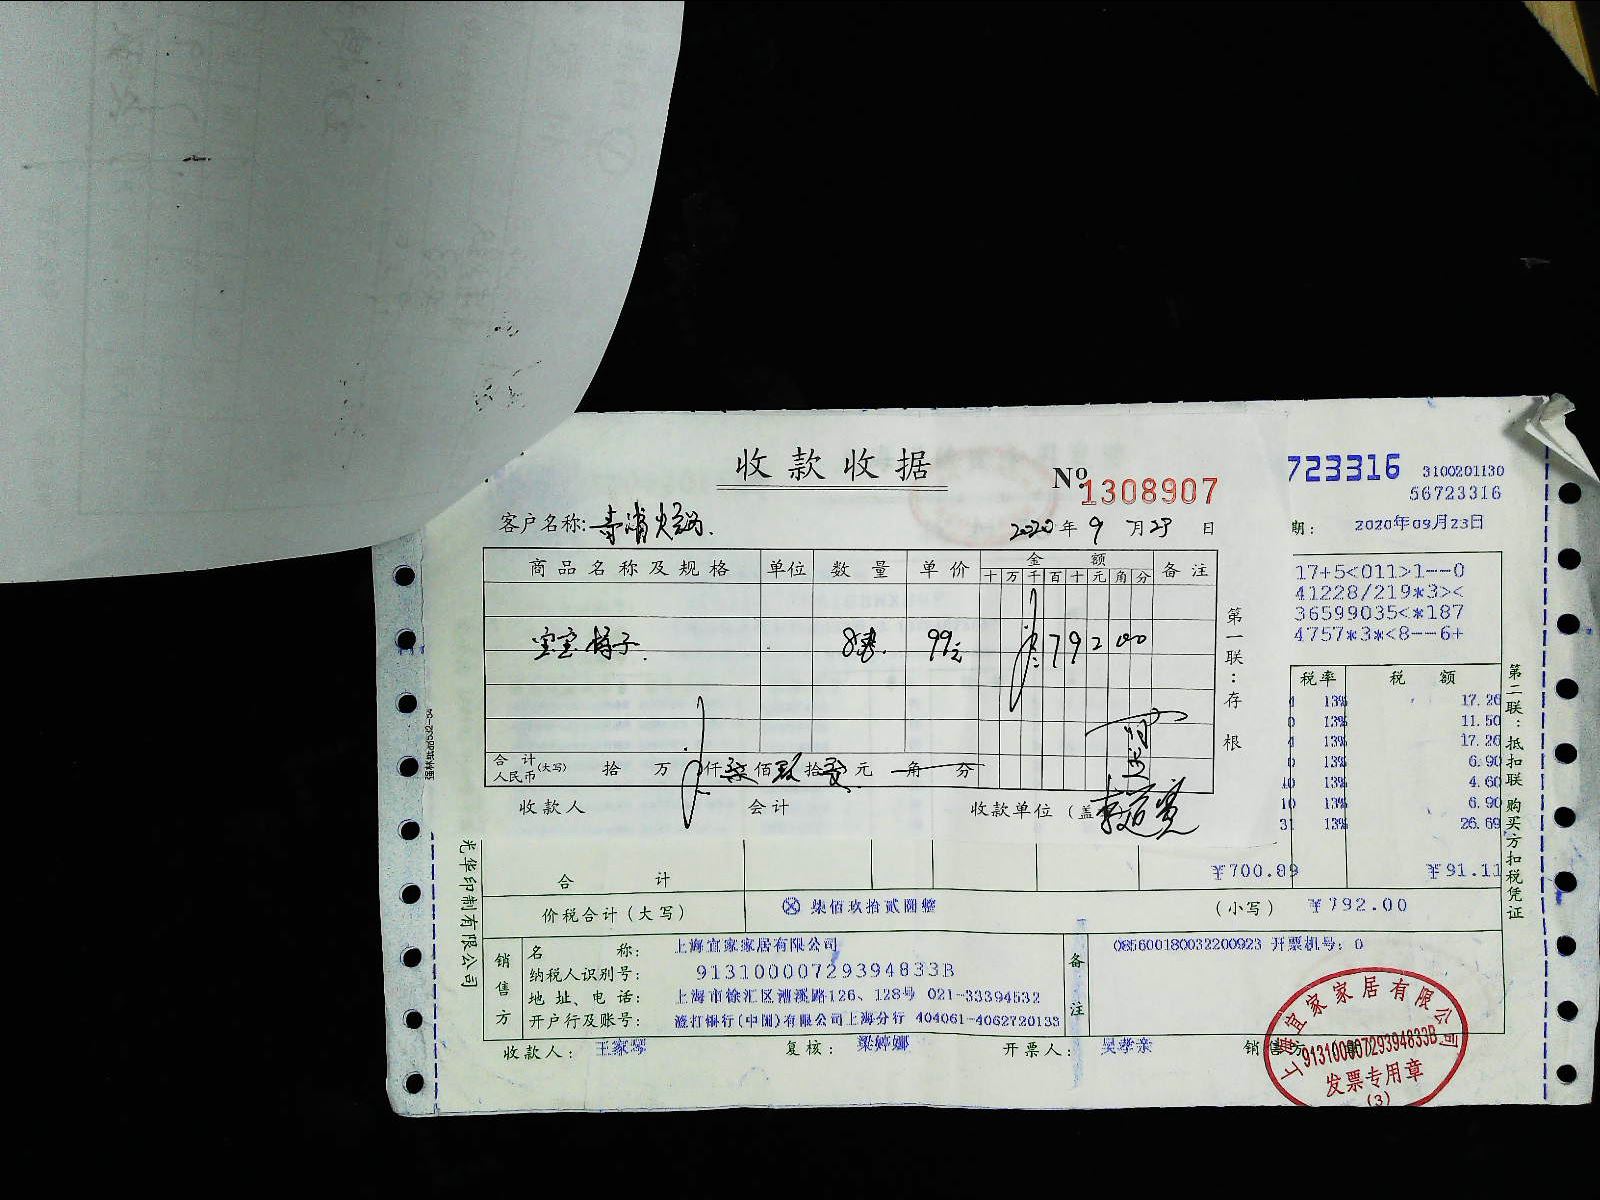 收款收据
№1308907
723316
3100201130
56723316
客户名称:
2020年9月23日
期: 2020年09月23日
商品名称及规格 单位 数量 单价 金额 备注
十万千百十元角分
17+5<011>1--0
41228/219*3><
36599035<*187
4757*3*<8--6+
宝宝椅子. 99元 792 00
第一联:存根
税率 税额
13% 17.26
13% 11.50
13% 17.26
13% 6.90
10 13% 4.60
10 13% 6.90
31 13% 26.69
第二联:抵扣联 购买方扣税凭证
合计人民币(大写) 拾 万 仟柒佰玖拾贰元 角 分
收款人 会计 收款单位(盖
光华印制有限公司
合计 ¥700.89 ¥91.11
价税合计(大写) ⊗ 柒佰玖拾贰圆整 (小写) ¥792.00
销售方
名称: 上海宜家家居有限公司
纳税人识别号: 91310000729394833B
地址、电话: 上海市徐汇区漕溪路126、128号 021-33394532
开户行及账号: 渣打银行(中国)有限公司上海分行 404061-4062720133
备注
085600180032200923 开票机号: 0
收款人: 王家琴 复核: 梁婷娜 开票人: 吴孝亲 销售方
上海宜家家居有限公司
91310000729394833B
发票专用章
(3)